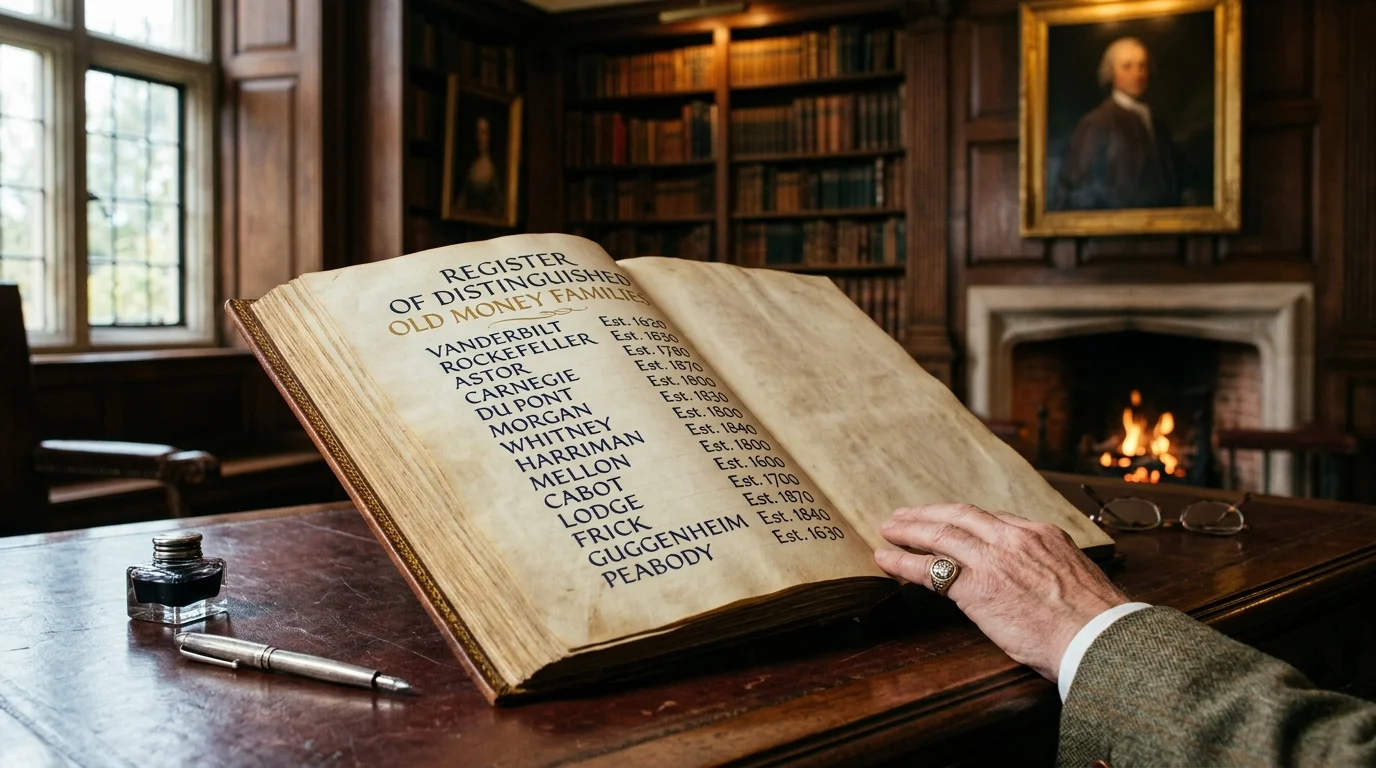 REGISTER
OF DISTINGUISHED
OLD MONEY FAMILIES
VANDERBILT Est. 1620
ROCKEFELLER Est. 1630
ASTOR Est. 1780
CARNEGIE Est. 1870
DU PONT Est. 1800
MORGAN Est. 1830
WHITNEY Est. 1800
HARRIMAN Est. 1840
MELLON Est. 1800
CABOT Est. 1600
LODGE Est. 1700
FRICK Est. 1870
GUGGENHEIM Est. 1840
PEABODY Est. 1630